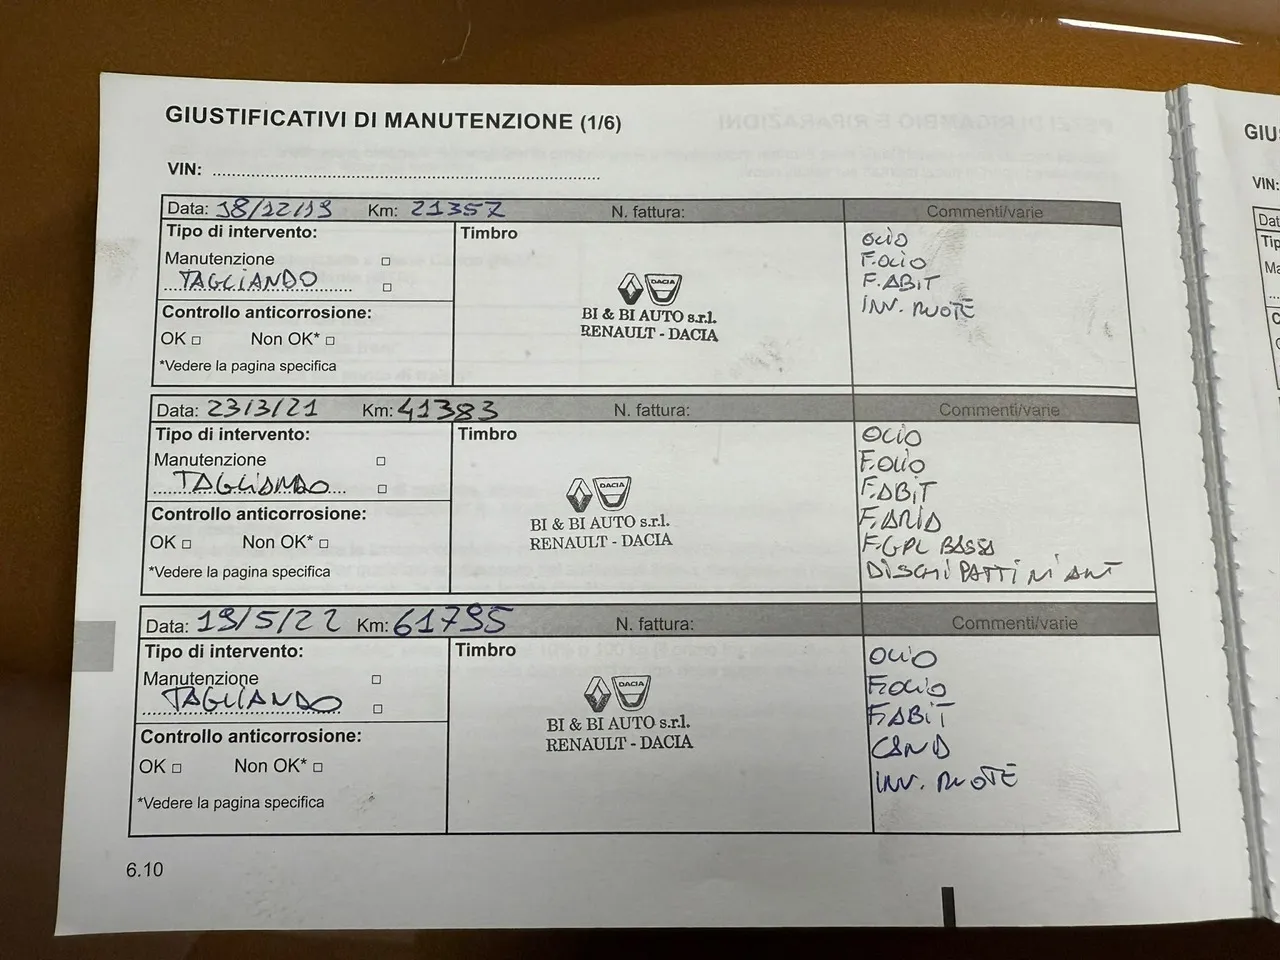 GIUSTIFICATIVI DI MANUTENZIONE (1/6)
VIN:
Data: 18/12/19 Km: 21357 N. fattura: Commenti/varie
Tipo di intervento:
Manutenzione
TAGLIANDO
Controllo anticorrosione:
OK Non OK*
*Vedere la pagina specifica
Timbro
DACIA
BI & BI AUTO s.r.l.
RENAULT - DACIA
OLIO
F.OLIO
F.ABIT
INV. RUOTE
Data: 23/3/21 Km: 41383 N. fattura: Commenti/varie
Tipo di intervento:
Manutenzione
TAGLIANDO
Controllo anticorrosione:
OK Non OK*
*Vedere la pagina specifica
Timbro
DACIA
BI & BI AUTO s.r.l.
RENAULT - DACIA
OLIO
F.OLIO
F.ABIT
F.ARIA
F.GPL BASSA
DISCHI PATTINI ANT
Data: 19/5/22 Km: 61795 N. fattura: Commenti/varie
Tipo di intervento:
Manutenzione
TAGLIANDO
Controllo anticorrosione:
OK Non OK*
*Vedere la pagina specifica
Timbro
DACIA
BI & BI AUTO s.r.l.
RENAULT - DACIA
OLIO
F.OLIO
F.ABIT
INV. RUOTE
6.10
GIU
VIN: